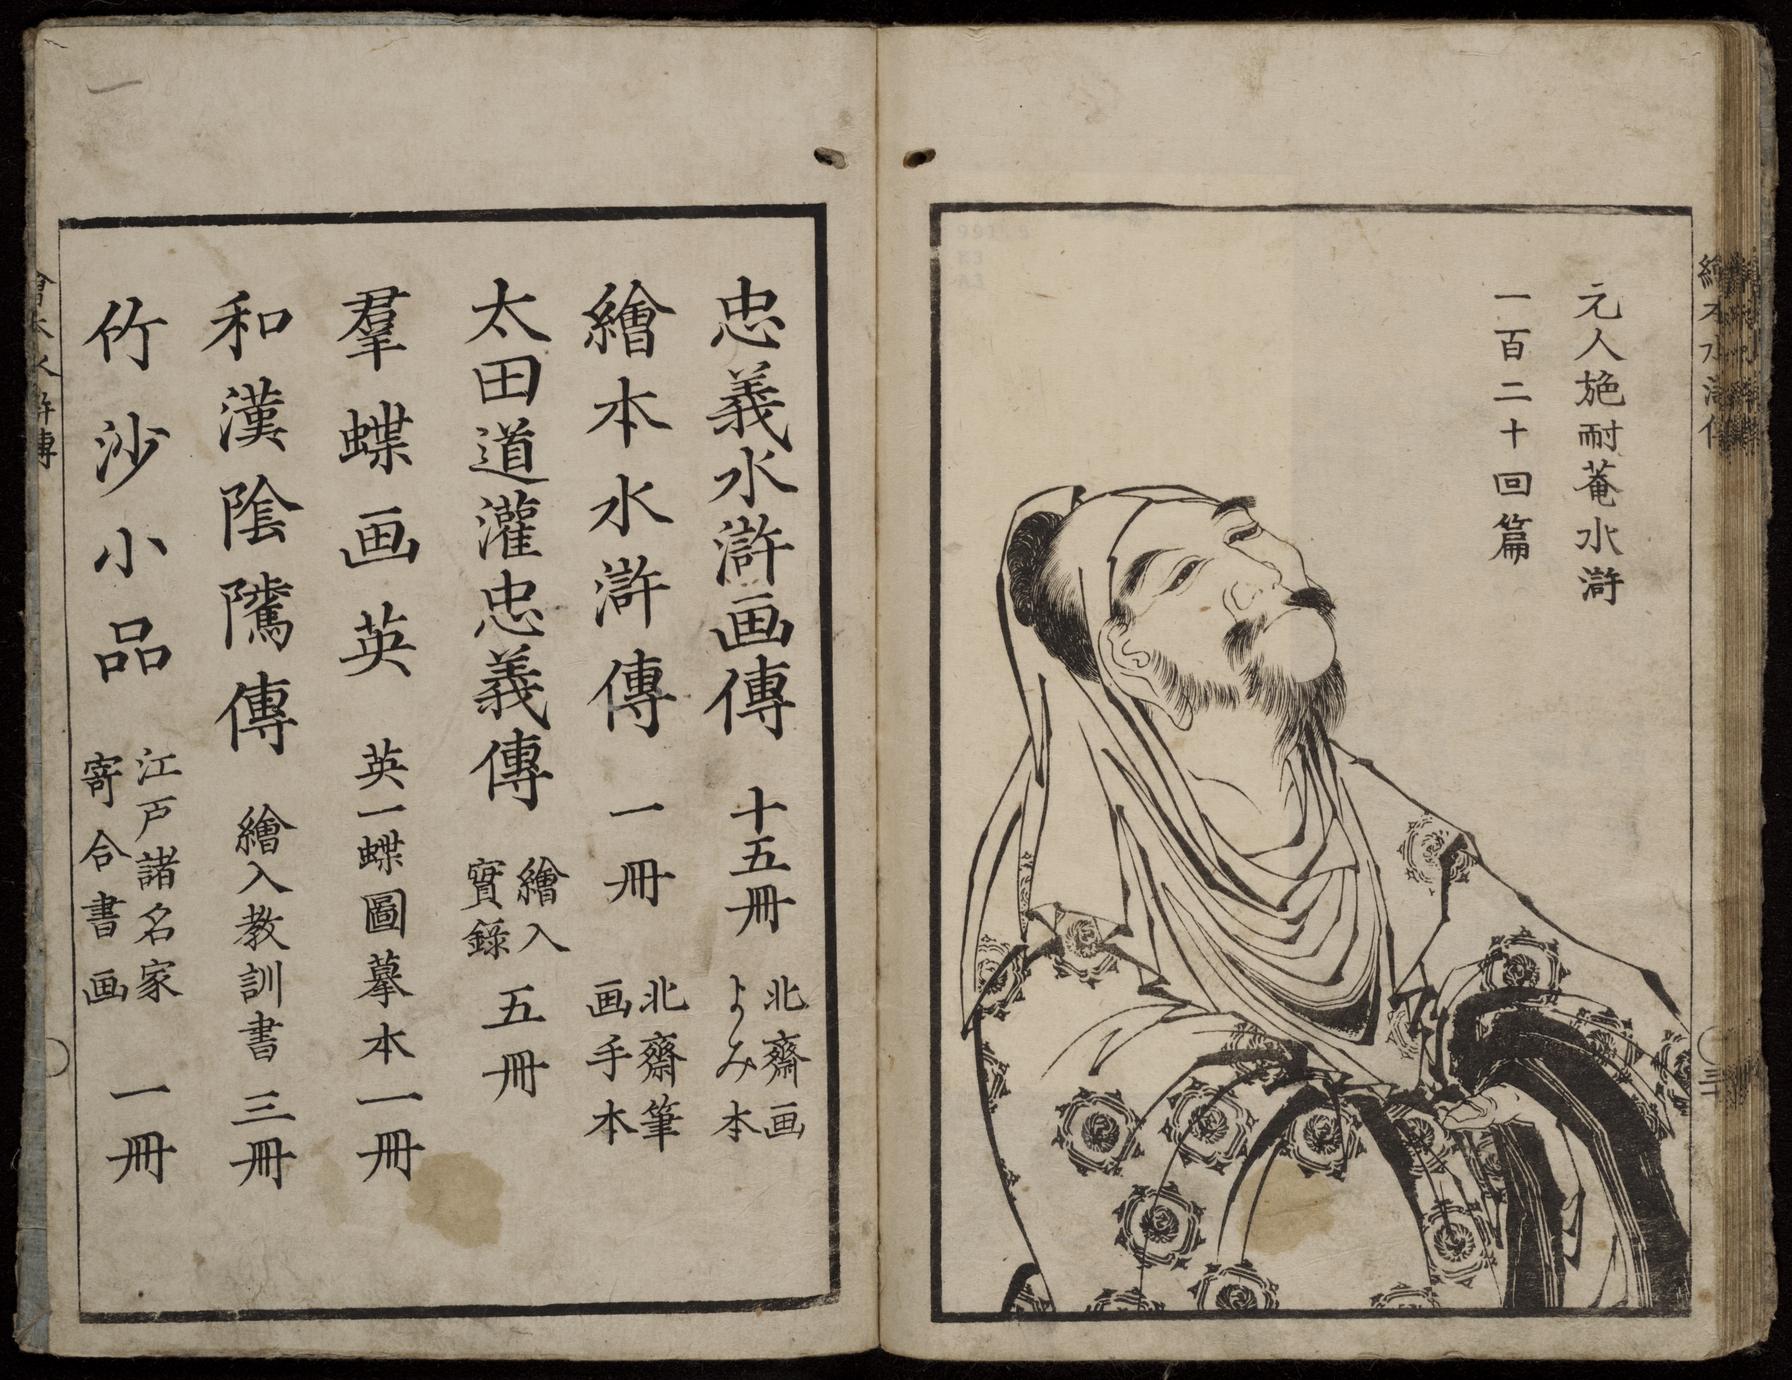 元人施耐菴水滸
一百二十回篇
忠義水滸画傳 十五冊 北齋画
よみ本
繪本水滸傳 一冊 北齋筆
画手本
太田道灌忠義傳 繪入
實錄 五冊
羣蝶画英 英一蝶圖摹本一冊
和漢陰隲傳 繪入教訓書 三冊
竹沙小品 江戸諸名家
寄合書画 一冊